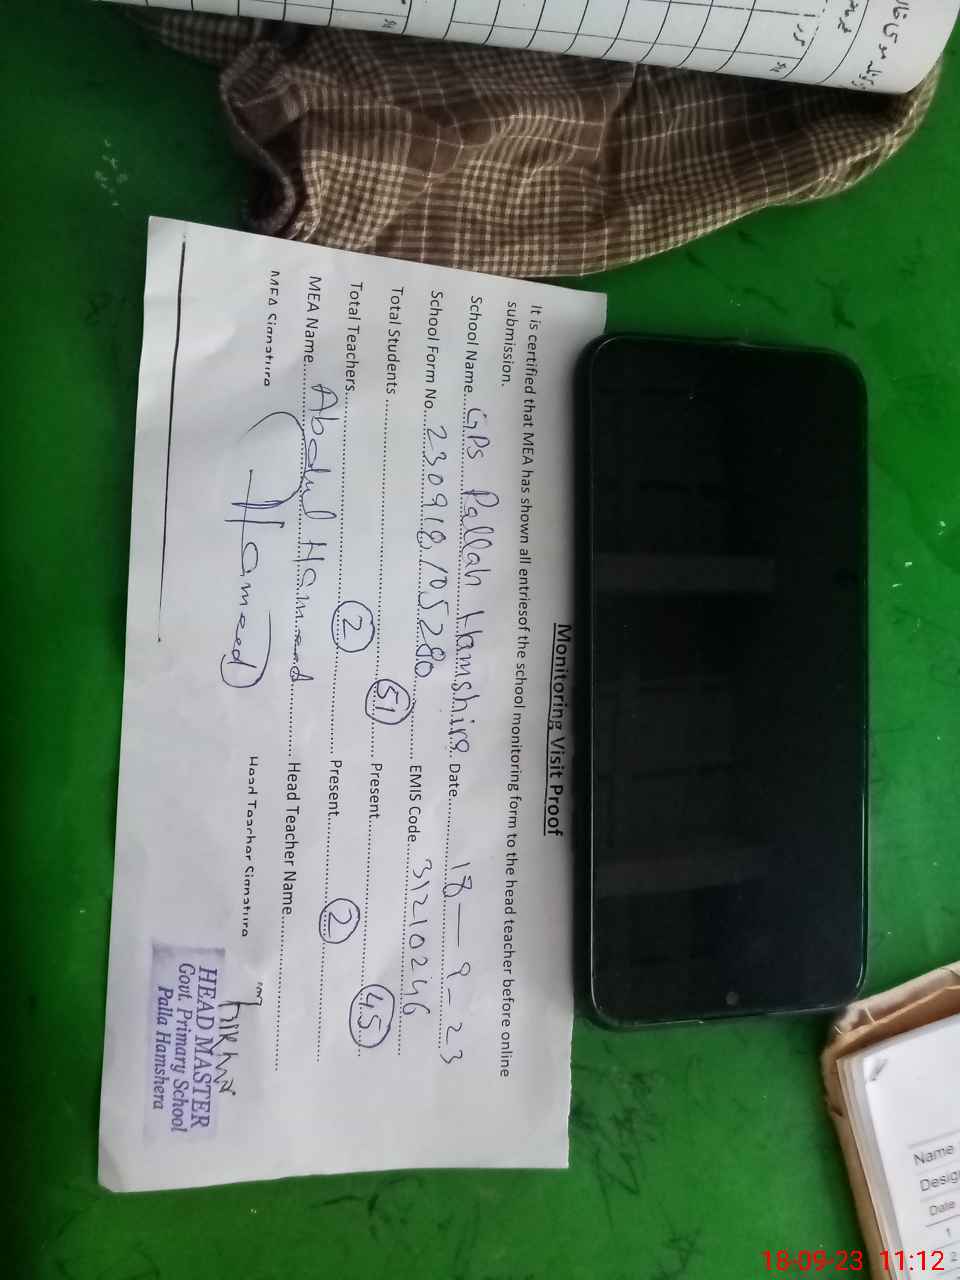 Monitoring Visit Proof
It is certified that MEA has shown all entriesof the school monitoring form to the head teacher before online
submission.
School Name...GPS Pallah Hamshira.. Date......... 18 — 9 - 23
School Form No...230918105280......... EMIS Code...31210246
Total Students ...............(51)...... Present...............(45)...
Total Teachers...............(2)............... Present.........(2)...............
MEA Name...Abdul Hameed............ Head Teacher Name..............................
MEA Signature Hameed Head Teacher Signature
HEAD MASTER
Govt. Primary School
Palla Hamshera
Name
Desig
Date
1
2
18-09-23 11:12